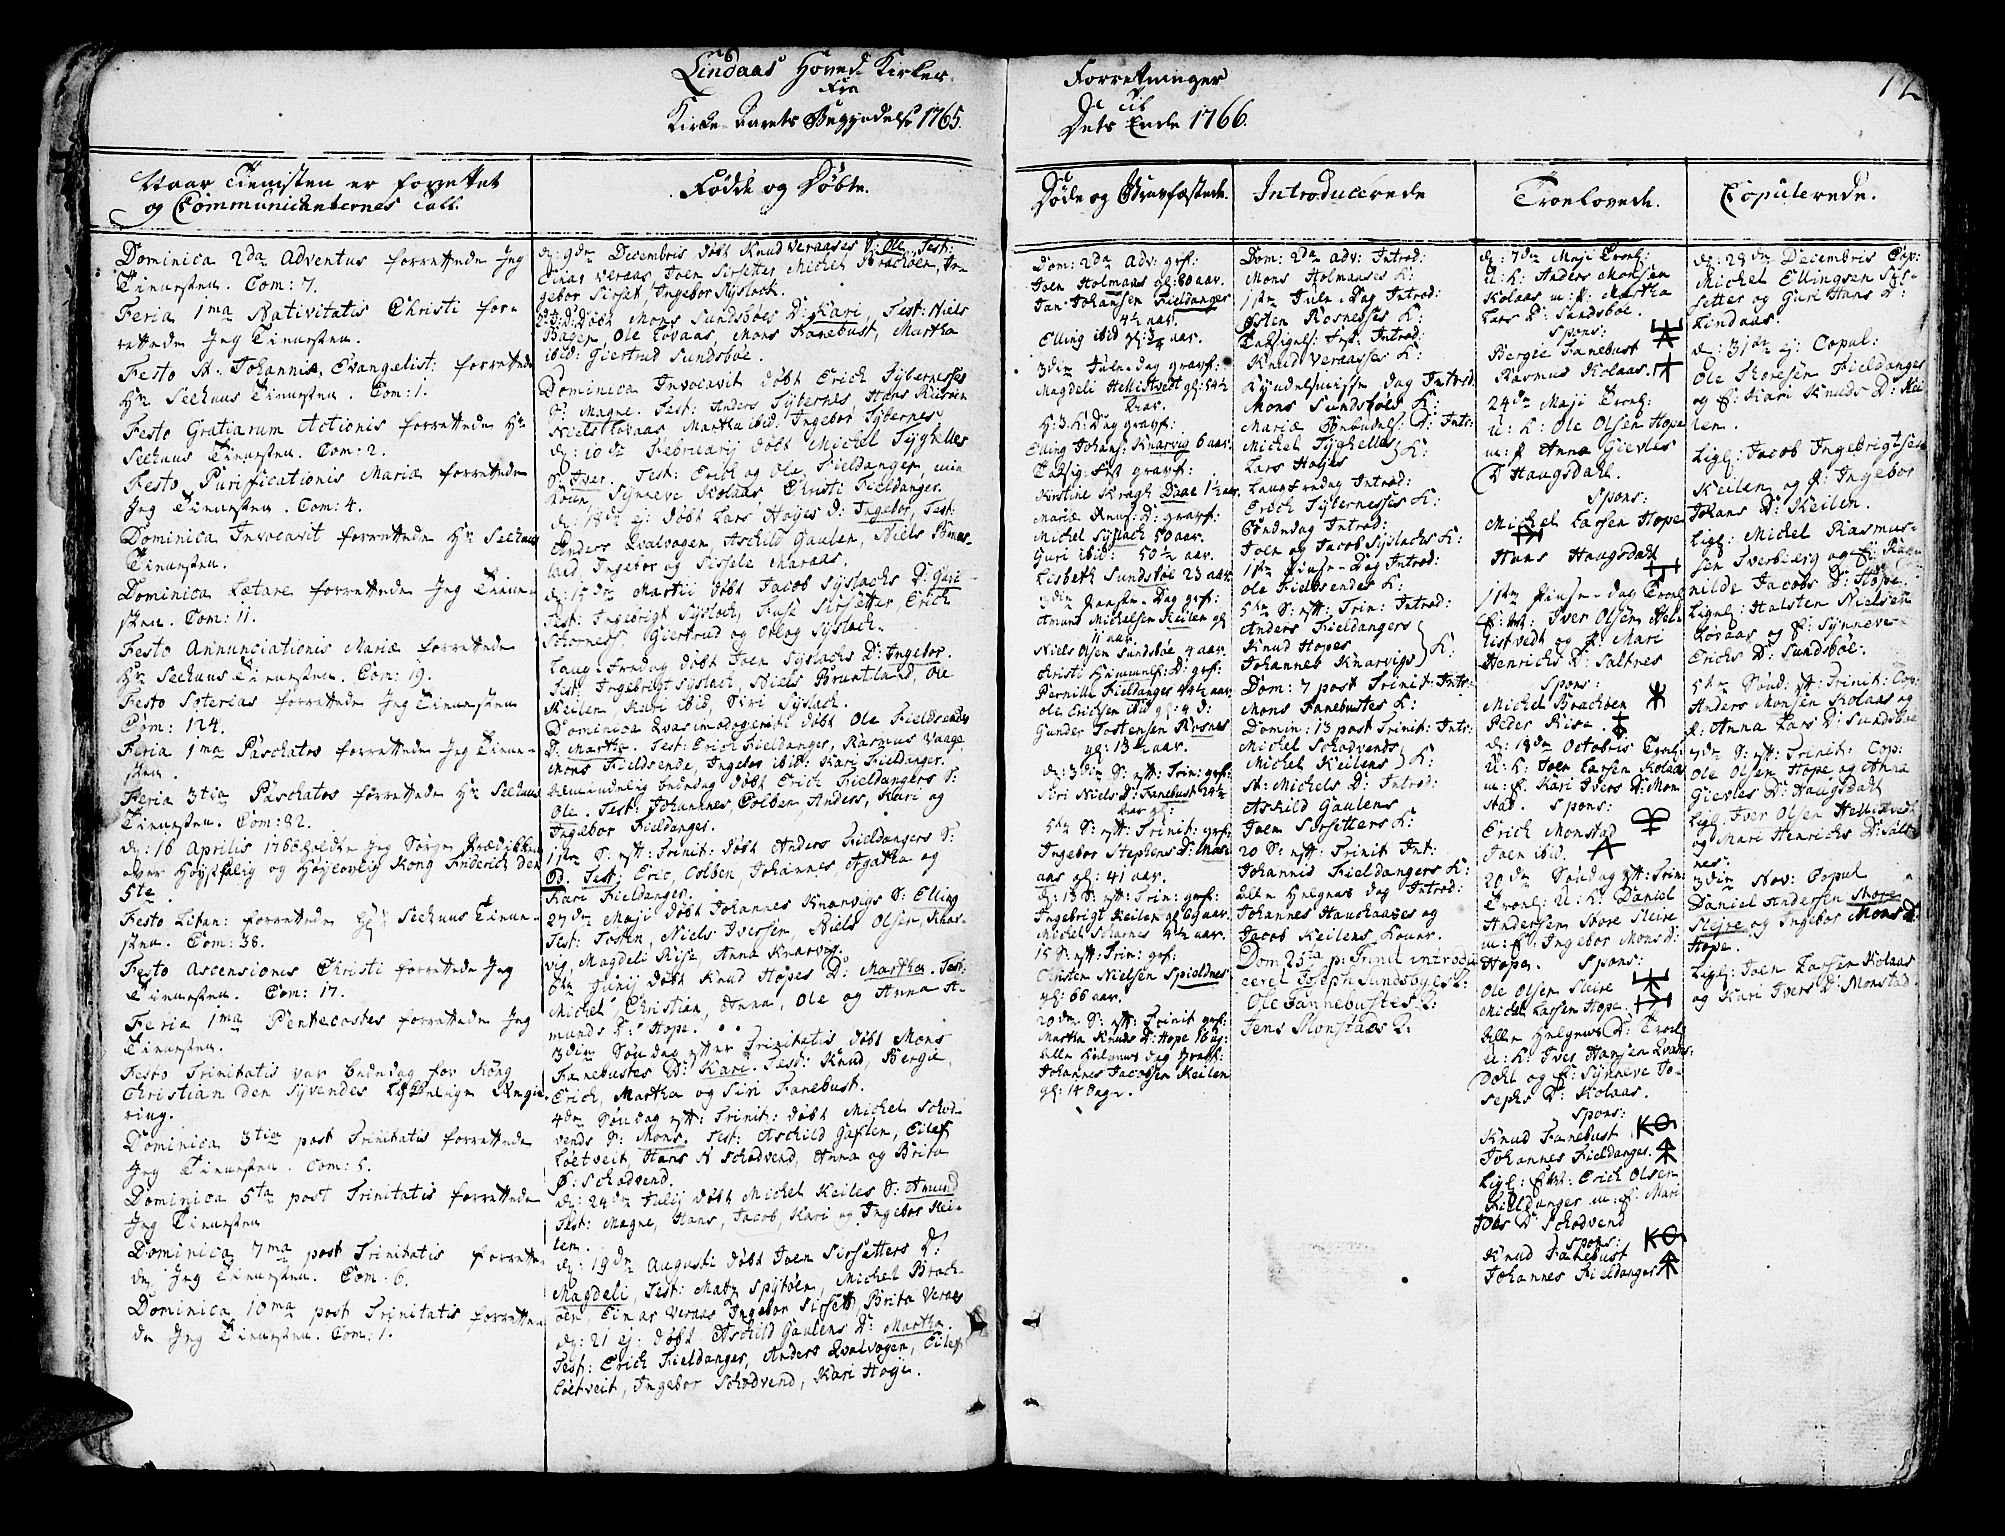 Lindaas Hoved Kirkes
Fra
Kirke Aarets Begyndelse 1765.
Forretninger
Til
Dets Ende 1766.
12
Naar Tienisten er forrettet
og Communicanternes Tall.
Dominica 2da Adventus forrettede Jeg
Tienesten. Com: 7.
Feria 1ma Nativitatis Christi for-
rettede Jeg Tienesten.
Festo St. Johannis Evangelist: forrettede
Hr. Seehuus Tienesten. Com: 1.
Festo Gratiarum Actionis forrettede Hr
Seehuus Tienesten. Com: 2.
Festo Purificationis Mariæ forrettede
Jeg Tienesten. Com: 4.
Dominica Invocavit forrettede Hr Seehuus
Tienesten.
Dominica Lætare forrettede Jeg Tiene-
sten. Com: 11.
Festo Annunciationis Mariæ forrettede
Hr Seehuus Tienesten. Com: 19.
Festo Soterias forrettede Jeg Tienesten
Com: 124.
Feria 1ma Paschatos forrettede Jeg Tiene-
sten.
Feria 3tia Paschatos forrettede Hr Seehuus
Tienesten. Com: 82.
d: 16 Aprilis 1766 holdte Jeg Sørge Prædikken
over Høystsalig og Høylovlig Kong Friderich den
5te.
Festo Litan: forrettede Hr Seehuus Tiene-
sten. Com: 38.
Festo Ascensionis Christi forrettede Jeg
Tienesten. Com: 17.
Feria 1ma Pentecostes forrettede Jeg
Tienesten.
Festo Trinitatis var Bededag for Kong
Christian den Syvendes
ring.
Dominica 3tia post Trinitatis forrettede
Jeg Tienesten. Com: 5.
Dominica 5ta post Trinitatis forrettede
Jeg Tienesten
Dominica 7ma post Trinitatis forrette-
de Jeg Tienesten. Com: 6.
Dominica 10ma post Trinitatis forrette-
de Jeg Tienesten. Com: 1.
Fødde og Døbte.
d: 9de Decembris døbt Knud Veraases S: Ole, Test:
Einar Veraas, Joen Sirsetter, Michel Brachöen, In-
gebor Sirset, Ingebor Syslach.
døbt Mons Sundsbøes D: Kari, Test: Niels
Ole Lovaas, Mons Fanebust, Martha
ibid: Giertrud Sundsbøe.
Dominica Invocavit døbt Erich Sybernesses
S: Magne. Test: Anders Sybernes, Hans Risnen
Niels Lovaas, Martha ibid: Ingebor Sybernes
d: 10de Februarij døbt Michel Tyghelles
S: Iver. Test: Erich og Ole Fieldanger,
Synneve Kolaas, Christi Fieldanger.
d: 18de ej: døbt Lars Høyes D: Ingebor, Test:
Anders Qvalvogen, Aschild Gaulen, Niels
land, Ingebor og Sissele Maraas.
d: 15de Martii døbt Jacob Syslachs D: Guri
Test: Ingebrigt Syslach, Sirsetter, Erich
Giertrud og Syslach.
Lang-Fredag døbt Joen Syslachs D: Ingebor.
Test: Ingebrigt Syslach, Niels Bruntland, Ole
Keilen, Kari ibid, Siri Syslach.
Dominica Qvasimodogeniti døbt Ole Fieldsendes
D: Martha. Test: Erich Fieldanger, Rasmus Vaage
Mons Fieldsende, Ingebor ibid: Kari Fieldanger.
Almindelig Bededag døbt Erich Fieldangers S:
Ole. Test: Johannes, Colben, Anders, Kari og
Ingebor Fieldanger.
1ste S: eft: Trinit: døbt Anders Fieldangers S:
Od. Test: Eric, Colben, Johannes, Agatha og
Kari Fieldanger.
27de Maji døbt Johannes Knarvigs S: Elling
Test: Tosten, Niels Iversen, Niels Olsen, Knar-
vig, Magdeli Riise, Anna Knarvog
6te Junij døbt Knud Hopes D: Martha. Test:
Michel, Christian, Anna, Ole og Anna A-
munds D: Hope.
3die Søndag efter Trinitatis døbt Mons
Fanebustes D: Kari. Test: Knud, Bergie,
Erich, Martha og Siri Fanebust.
4de Søndag eft: Trinit: døbt Michel Schod-
vends S: Mons. Test: Aschild Gaulen, Eilef
Löetveit, Hans N Schodvend, Anna og Brita
Ø: Schodvend.
d: 24de Julij døbt Michel Keiles S: Amund
Test: Magne, Hans, Jacob, Kari og Ingebor Kei-
len.
d: 19de Augusti døbt Joen Sirsetters D:
Magdeli, Test: Mats Spytøen, Michel Brach-
øen, Einar Veraas, Ingebor Sirsett, Brita Veraas
d: 21 ej. døbt Aschild Gaulens D: Martha.
Test: Erich Fieldanger, Anders Qvalvogen, Eilef
Löetveit, Ingebor Schodvend, Kari Høye.
Døde og Gravfæstede.
Dom: 2da Adv: grf:
Joen Holmaas gl: 80 aar.
Jan Johansen Fieldanger
4½ aar.
Elling ibid gl: ¾ aar.
3die Jule-Dag gravf:
Magdeli Hellistvedt gl: 54½
aar.
H: 3 K: Dag gravf:
Elling Johans: Knarvig 6 aar.
gravf:
Kirstine Kragh Daae 1½ aar.
Mariæ Renf: D: gravf:
Michel Syslach 50 aar.
Guri ibid: 50½ aar.
Lisbeth Sundsbøe 23 aar.
3die Paasche-Dag grf:
Amund Michelsen Keilen gl
11 aar.
Niels Olsen Sundsbøe 4 aar.
Christi Himmelf: D: grf:
Pernille Fieldanger 44½ aar
Ole Erichsen ibid gl: 4 d:
Gunder Tostensen Rosnes
gl: 13½ aar.
d: 3die S: eft: Trin: grf:
Siri Niels D: Fanebust 24½
aar gl:
5te S: eft: Trinit: grf:
Ingebor Stephens D: Mare
aas gl: 41 aar.
d: 13 S: eft: Trin: grf:
Ingebrigt Keilen gl 69 aar.
Michel 4½ aar.
15 S: eft: Trin: grf:
Christen Nielsen Spieldnes
gl: 66 aar.
20de S: eft: Trinit grf:
Martha Knuds D: Hope 16 ug:
Alle Helgens Dag gravf:
Johannes Jacobsen Keilen
gl: 14 dage.
Introducerede
Dom: 2da Adv: Introd:
Mons Holmaases K:
1ste Jule-Dag Introd:
Østen Rosnesses K:
Introd:
Knud Veraases K:
Kyndelmisse dag Introd:
Mons Sundsbøes K:
Mariæ Bebudelses D: Intr:
Michel Tyghelles
Lars Høyes } K:
Langfredag Introd:
Erich Sybernesses K:
Bededag Introd:
Joen og Jacob Syslachs K:
1ste Pintse-Dag Introd:
Ole Fieldsendes K:
5te S: eft: Trin: Introd:
Anders Fieldangers
Knud Hopes
Johannes Knarvigs } K:
Dom: 7 post Trinit: Intr:
Mons Fanebustes K:
Domin: 13 post Trinit: Intr:
Michel Schodvends
Michel Keilens } K:
St: Michels D: Introd:
Aschild Gaulens
Joen Sirsetters K:
20 S: eft: Trinit Int:
Johannis Fieldangers K:
Alle Helgens dag Introd:
Johannes Haukaases og
Jacob Keilens Koner.
Dom: 25ta p: Trinit introdu
ceret Joseph Sundsbyes K:
Ole Fannebustes K:
Jens Monstads K:
Troelovede.
d: 7de Maji Troel:
U: K: Anders Monsen
Kolaas m: P: Martha
Lars D: Sundsbøe.
Spons:
Bergie Fanebust
Rasmus Kolaas.
24de Maji Troel:
U: K: Ole Olsen Hope
m: P Anna Gievles
D Haugsdahl.
Spons:
Michel Larsen Hope
Hans Haugsdahl
1ste Pintse-dag Troel:
Iver Olsen Hel-
listvedt og P: Mari
Henrichs D: Saltnes
Spons:
Michel Brachøen
Peder Riise.
d: 18de Octobris Troel:
U: K: Joen Larsen Kolaas
m: P: Kari Ivers D: Mon
stad. Spons:
Erich Monstad
Joen ibid.
20de Søndag eft: Trin:
Troel: U: K: Daniel
Andersen Store Sleire
m: P: Ingebor Mons D:
Hope. Spons:
Ole Olsen Sleire
Michel Larsen Hope
Alle Helgens D: Troel:
U: K: Iver Hansen Qvams
Dahl og P: Synneve Jo-
sephs D: Kolaas.
Spons:
Knud Fanebust KO
Johannes Fieldanger.
Ligl: Erich Olsen
Fieldanger m: P: Mari
Joes D: Schodvend
Spons:
Knud Fanebust KO
Johannes Fieldanger
Copulerede.
d: 28de Decembris Cop:
Michel Ellingsen Sir-
setter og Guri Hans D:
Lindaas.
d: 31de ej: Copul:
Ole Fieldanger
og P: Kari Knuds D: Kei
len.
Ligl: Jacob Ingebrigtsen
Keilen og P: Ingebor
Johans D: Keilen.
Ligl: Michel Rasmus-
sen Tverberg og P: Rag-
nilde Jacobs D: Hope.
Ligl: Halsten Nielsen
Lovaas og P: Synneve
Erichs D: Sundsbøe.
5te Sønd: eft: Trinit: Cop:
Anders Monsen Kolaas og
P: Anna Lars D: Sundsbøe
7de S: eft: Trinit: Cop:
Ole Olsen Hope og Anna
Gievles D: Haugsdahl
Ligl: Iver Olsen Hellistvedt
og Mari Henrichs D: Salt-
nes:
3die Nov: Copul
Daniel Andersen Store
Slejre og Ingebor Mons D:
Hope.
Ligl: Joen Larsen Kolaas
og Kari Ivers D: Monstad.